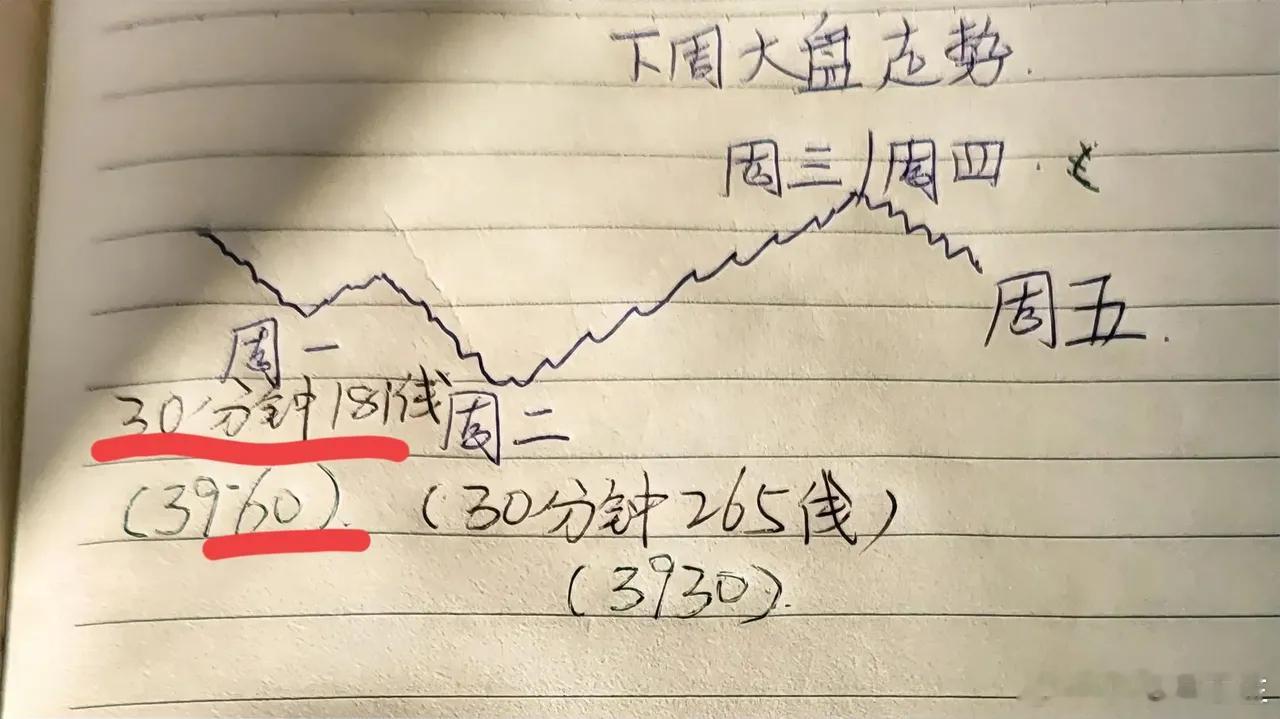 下周大盘走势.
周三/周四.
周一
周五.
30分钟181线
周二
(3960).
(30分钟265线)
(3930).